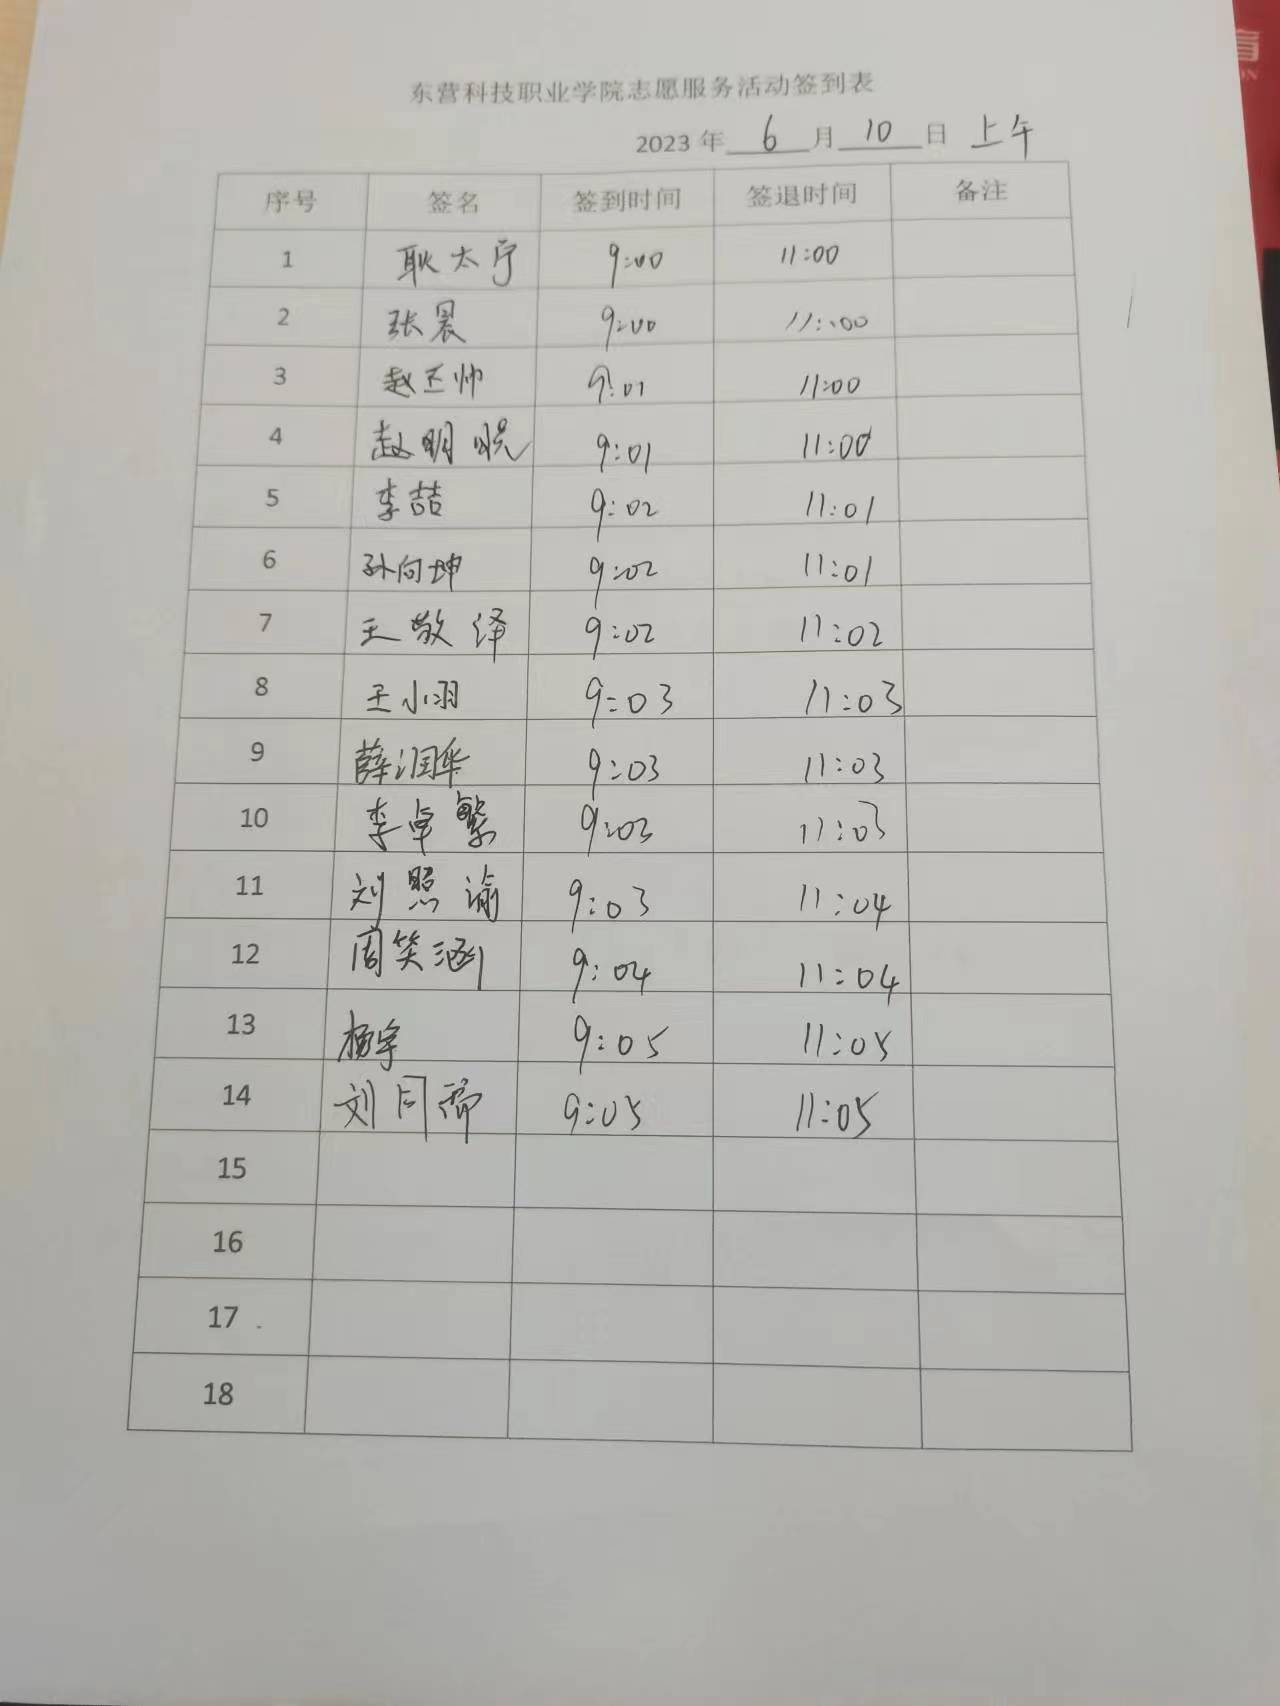 育
东营科技职业学院志愿服务活动签到表
2023 年 6 月 10 日 上午
序号 签名 签到时间 签退时间 备注
1 耿太宁 9:00 11:00
2 张晨 9:00 11:00
3 赵丕帅 9:01 11:00
4 赵明晄 9:01 11:00
5 李喆 9:02 11:01
6 孙向坤 9:02 11:01
7 王敬泽 9:02 11:02
8 王小羽 9:03 11:03
9 薛润华 9:03 11:03
10 李卓繁 9:03 11:03
11 刘照谕 9:03 11:04
12 周笑涵 9:04 11:04
13 杨宇 9:05 11:05
14 刘同 9:05 11:05
15
16
17
18